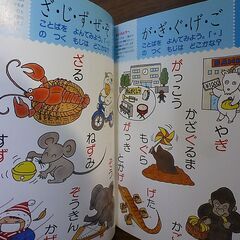 が・ぎ・ぐ・げ・ご
ことばを よんでみよう。「゛」
の つく もじは どこかな?
がっこう
かざぐるま
やぎ
もぐら
がっき
とかげ
げた
かご
ざ・じ・ず・ぜ・ぞ
ことばを よんでみよう。「゛」
の つく もじは どこかな?
ざる
ねずみ
すず
ぞうきん
かぜ